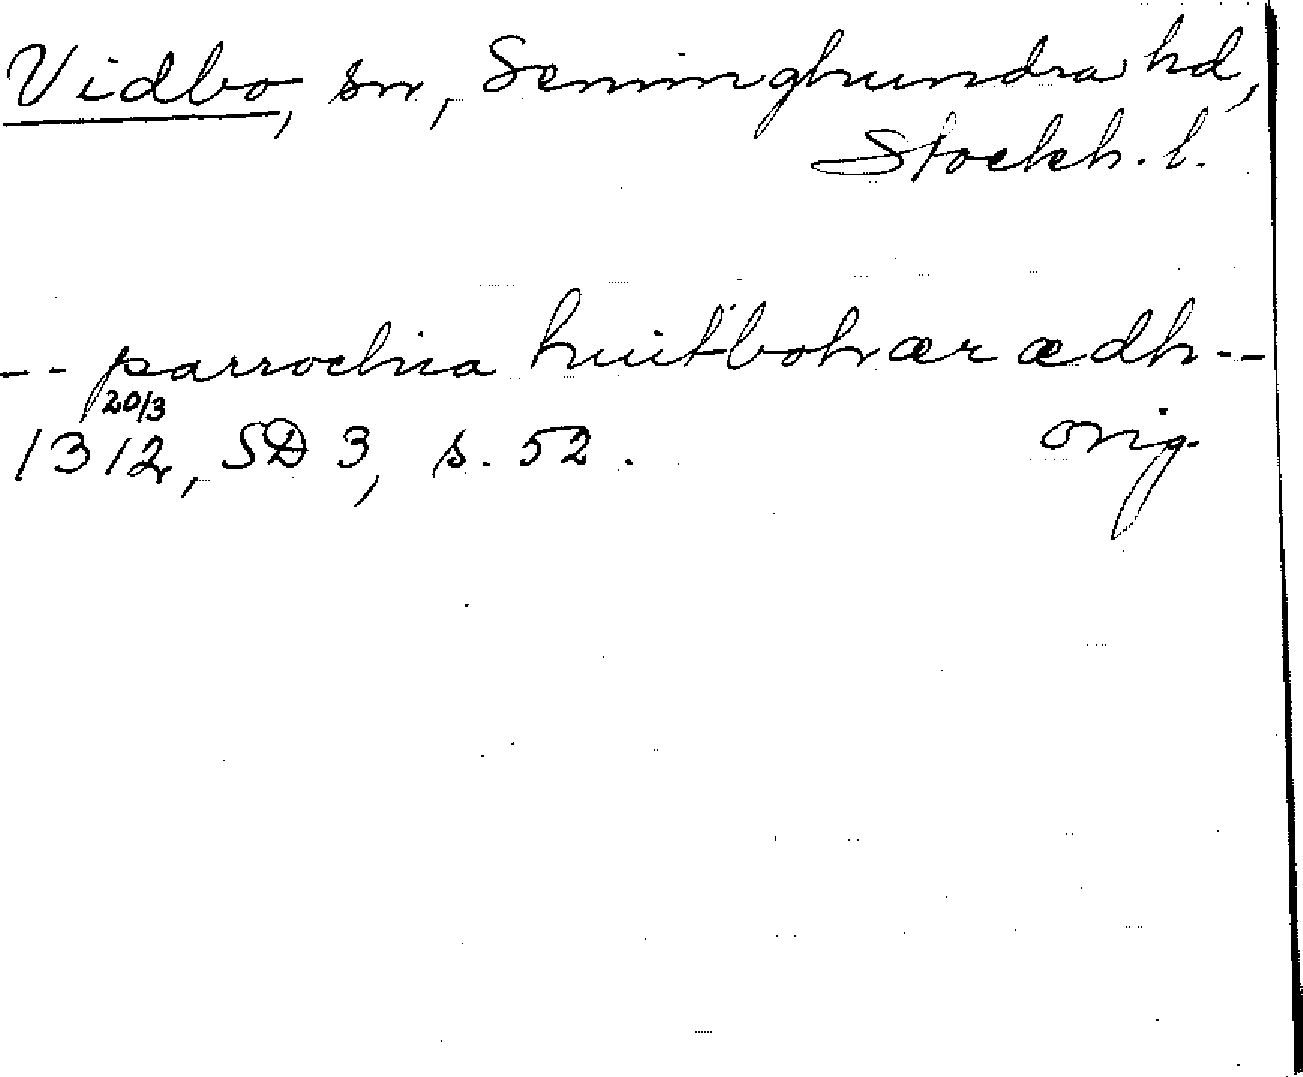 Vidbo, sn, Seminghundra hd,
Stockh. l.
-- parrochia huitbohærædh --
20/3
1312, SD 3, s. 52. orig.